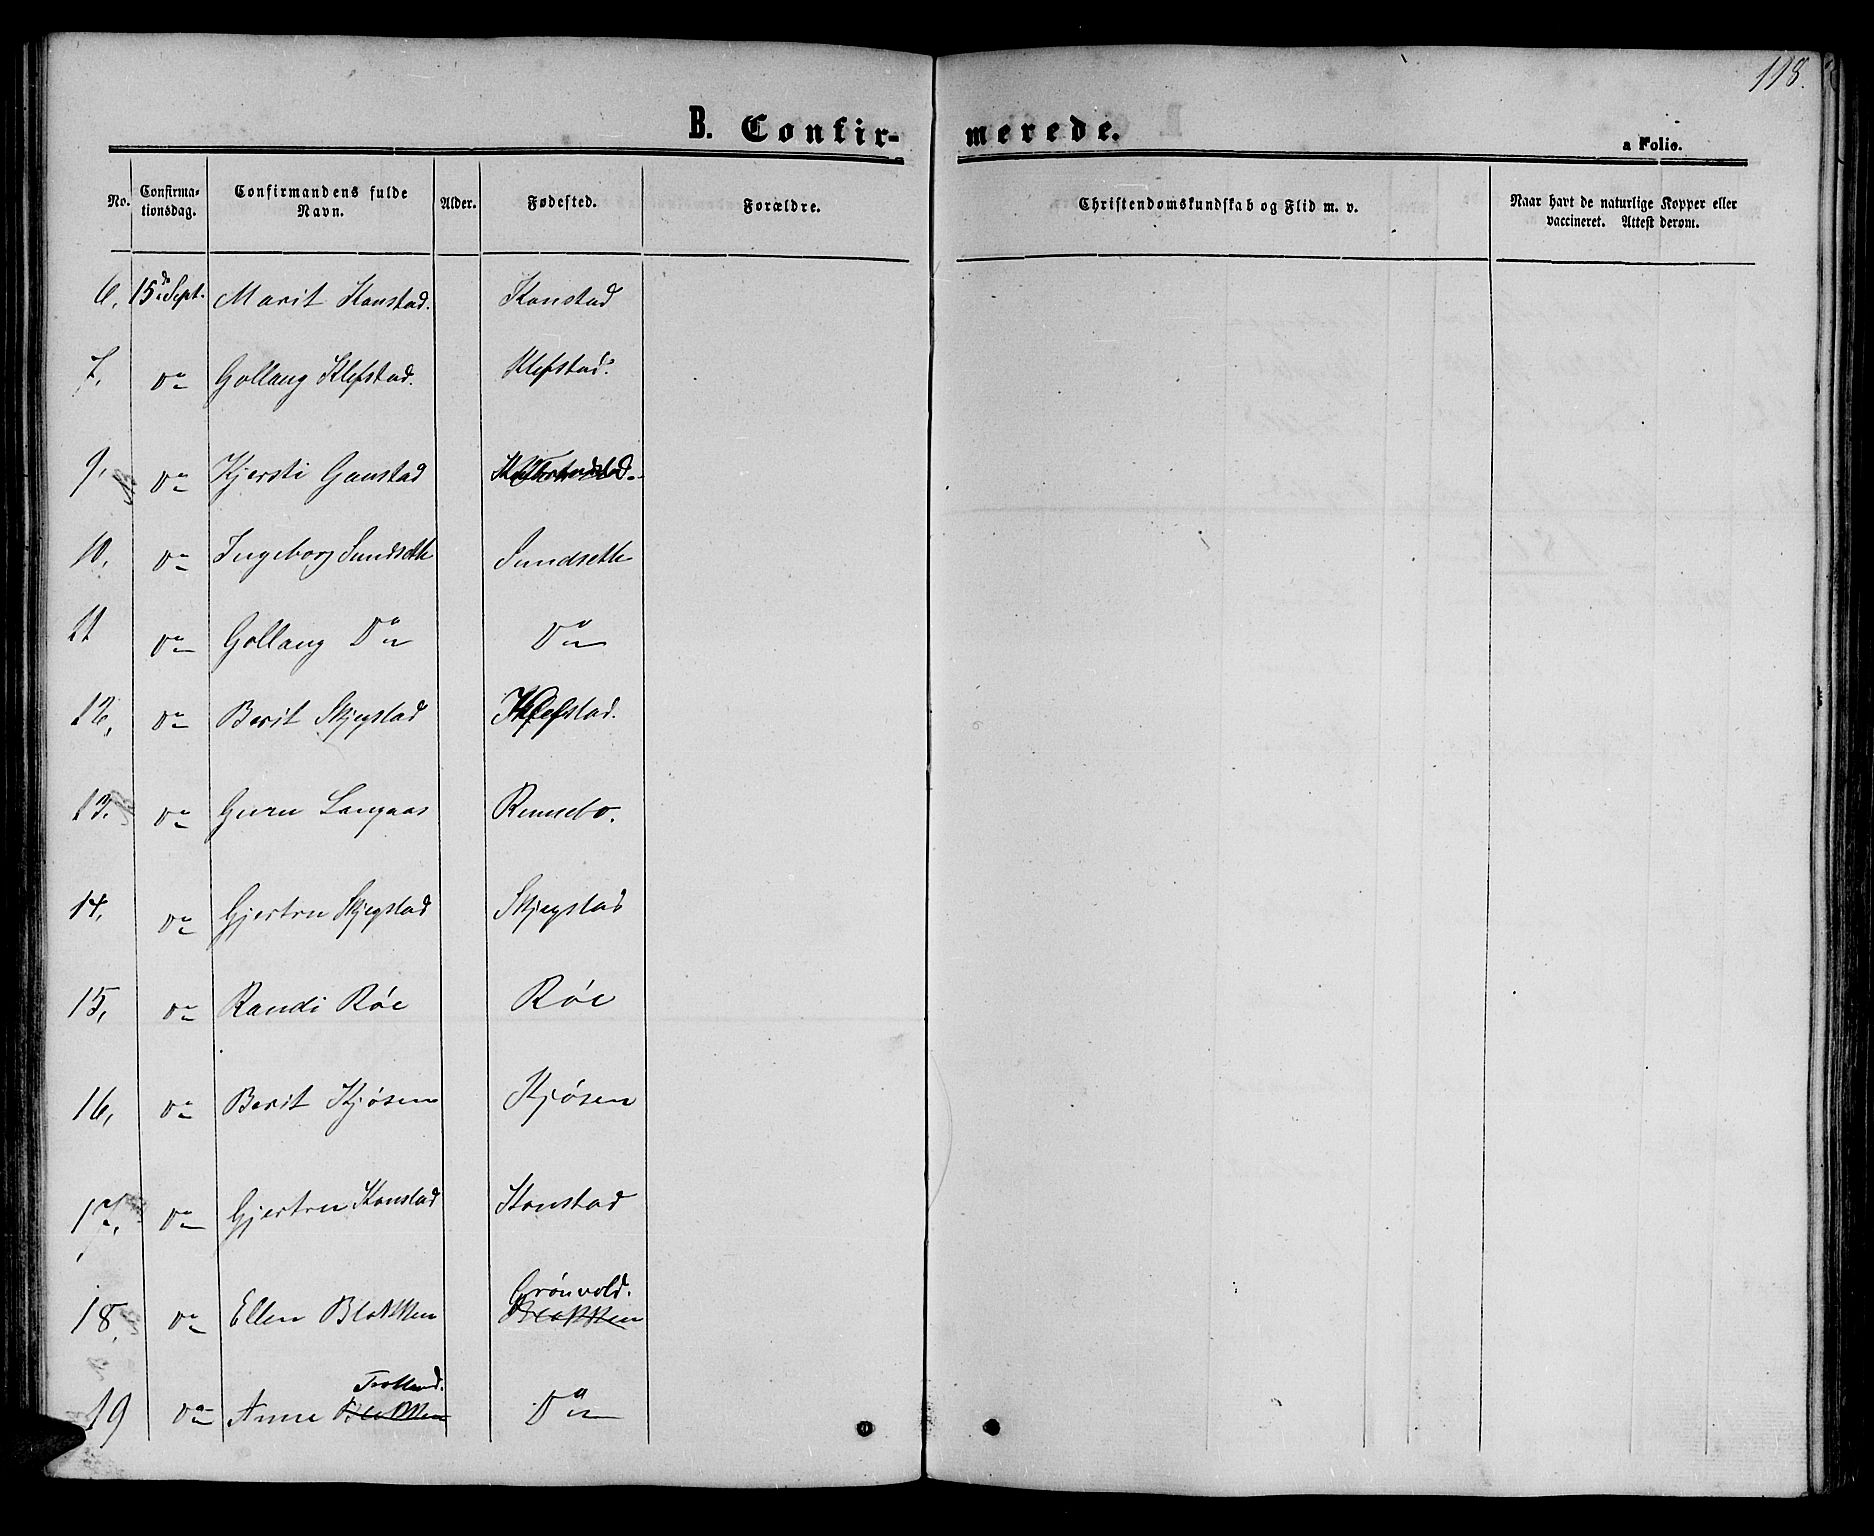 118.
B. Confir- merede.
a Folio.
No. Confirma-tionsdag. Confirmandens fulde Navn. Alder. Fødested. Forældre. Christendomskundskab og Flid m. v. Naar havt de naturlige Kopper eller vaccineret. Attest derom.
6, 15de Sept. Marit Konstad. Konstad
7, Do Gollaug Klefstad. Klefstad.
9, Do Kjersti Gaustad
10, Do Ingeborg Sundseth Sundseth
11 Do Gollaug Do Do
12, Do Berit Skjegstad Klefstad.
13, Do Guru Langaas Rennebo.
14, Do Gjertru Skjegstad Skjegstad
15, Do Randi Röe Röe
16, Do Berit Kjösen Kjösen
17, Do Gjertru Konstad Konstad
Grönvold.
18, Do Ellen Blokken Blokken
19 Do Anne Blokken Do